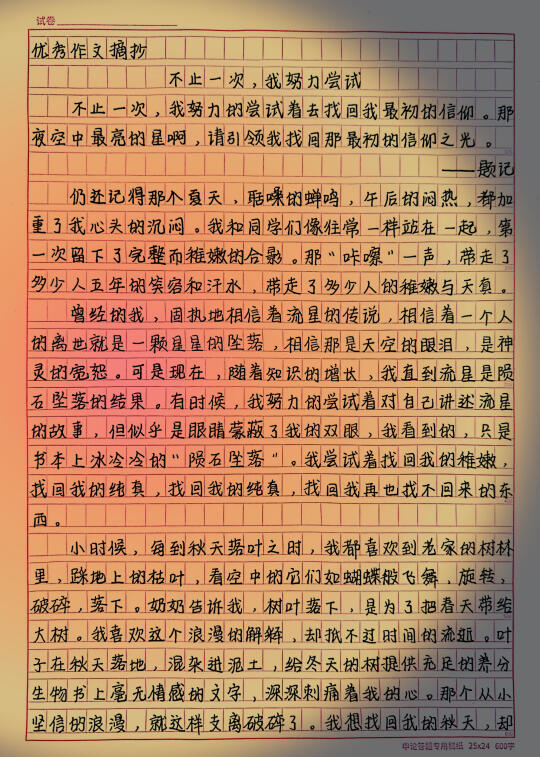 试卷
优秀作文摘抄
不止一次，我努力尝试
不止一次，我努力的尝试着去找回我最初的信仰。那
夜空中最亮的星啊，请引领我找回那最初的信仰之光。
——题记
仍还记得那个夏天，聒噪的蝉鸣，午后的闷热，都加
重了我心头的沉闷。我和同学们像往常一样站在一起，第
一次留下了完整而稚嫩的合影。那“咔嚓”一声，带走了
多少人五年的笑容和汗水，带走了多少人的稚嫩与天真。
曾经的我，固执地相信着流星的传说，相信着一个人
的离世就是一颗星星的坠落，相信那是天空的眼泪，是神
灵的宽恕。可是现在，随着知识的增长，我直到流星是陨
石坠落的结果。有时候，我努力的尝试着对自己讲述流星
的故事，但似乎是眼睛蒙蔽了我的双眼，我看到的，只是
书本上冰冷冷的“陨石坠落”。我尝试着找回我的稚嫩，
找回我的纯真，找回我的纯真，找回我再也找不回来的东
西。
小时候，每到秋天落叶之时，我都喜欢到老家的树林
里，踩地上的枯叶，看空中的它们如蝴蝶般飞舞，旋转，
破碎，落下。奶奶告诉我，树叶落下，是为了把春天带给
大树。我喜欢这个浪漫的解释，却抵不过时间的流逝。叶
子在秋天落地，混杂进泥土，给冬天的树提供充足的养分
生物书上毫无情感的文字，深深刺痛着我的心。那个从小
坚信的浪漫，就这样支离破碎了。我想找回我的秋天，却
申论答题专用稿纸 25x24 600字